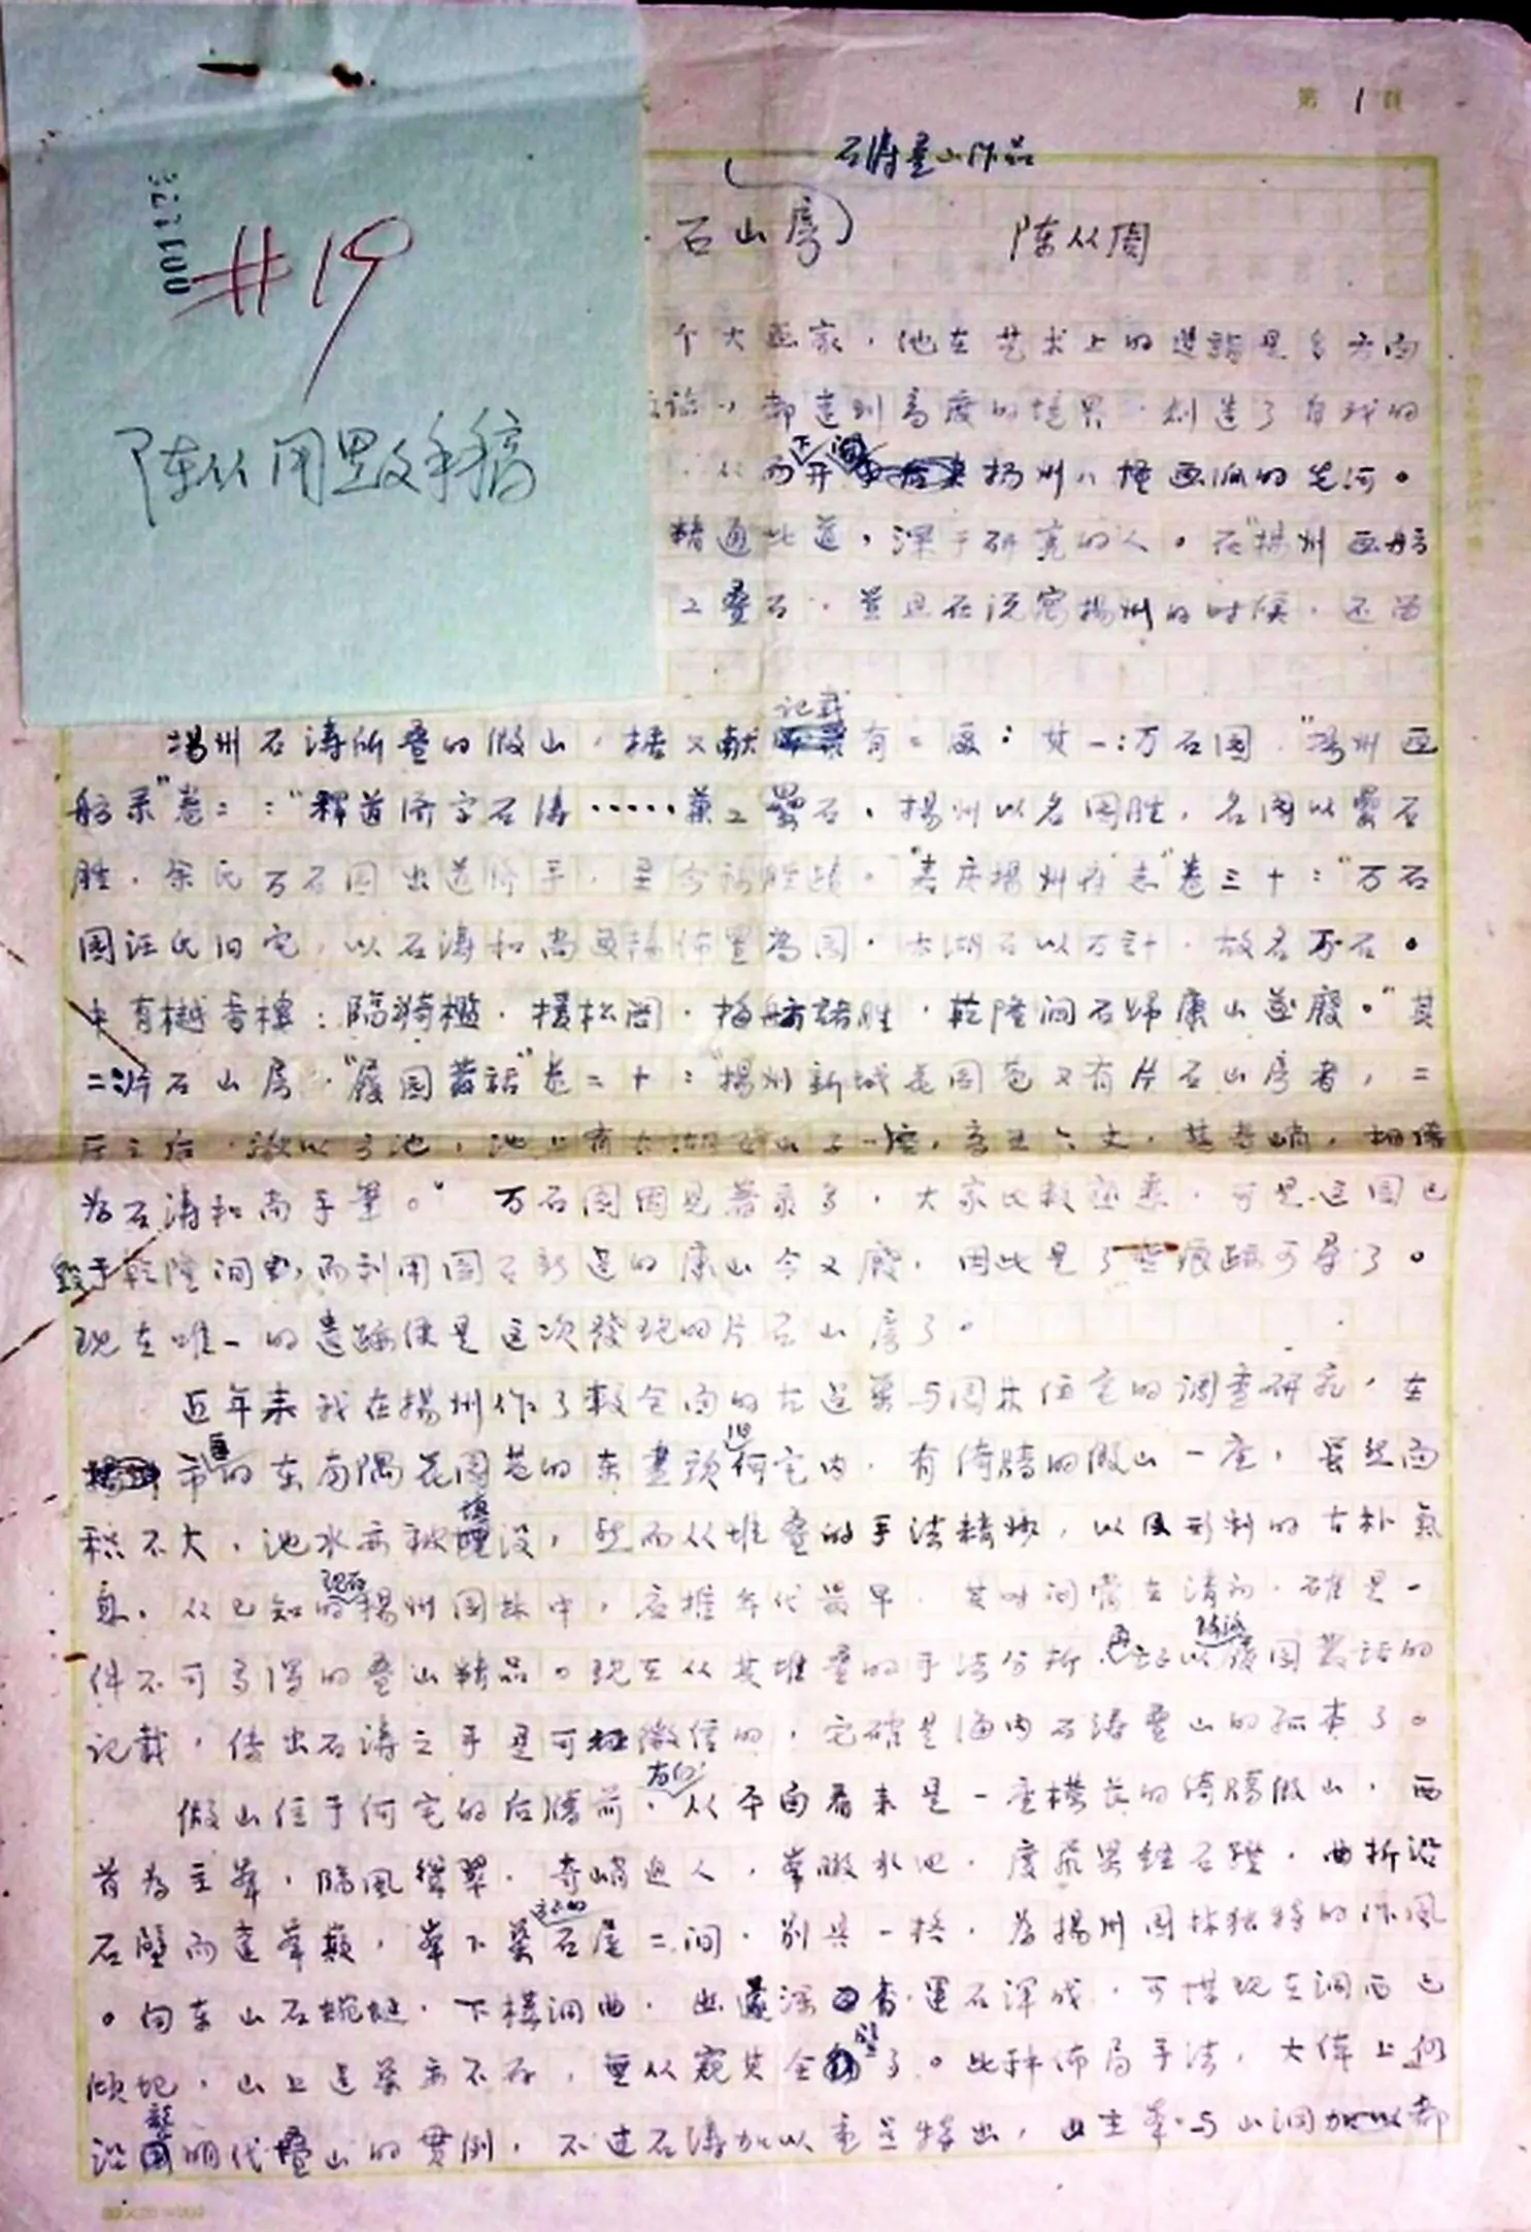 第1頁
001173
#19
陈从周毁手稿
石涛叠山作品
石山房
陈从周
个大画家，他在艺术上的造詣是多方面
都达到高度的境界，創造了自我的
从而开下间揚州八怪画派的先河。
精通此道，深于研究的人。在“揚州画舫
工叠石，並且在流寓揚州的时候，还留
揚州石涛所叠的假山，据文献记載有二处：其一：万石园，“揚州画
舫录”卷二：“釋道济字石涛……兼工壘石，揚州以名园胜，名园以壘石
胜，余氏万石园出道济手，至今称胜蹟。”“嘉庆揚州府志”卷三十：“万石
园汪氏旧宅，以石涛和尚画稿佈置為园，太湖石以万計，故名万石。
中有樾香樓、臨漪檻、援松閣、梅舫諸胜，乾隆间石歸康山遂廢。”其
二：片石山房，“履园叢話”卷二十：“揚州新城花园巷又有片石山房者，二
厅之后，湫以方池，池上有太湖石山子一座，高五六丈，甚奇峭，相傳
为石涛和尚手筆。” 万石园因見著录多，大家比較熟悉，可是这园已
毁于乾隆间，而利用园石新造的康山今又廢，因此是了無痕蹟可尋了。
现在唯一的遺蹟便是这次發現的片石山房了。
近年来我在揚州作了較全面的古建築与园林住宅的調查研究，在
市的东南隅花园巷的东盡頭旧何宅内，有倚牆的假山一座，虽然面
积不大，池水亦被填没，然而从堆叠的手法精妙，以及形制的古朴氣
息，从已知的现存揚州园林中，应推年代最早，其时间當在清初，確是一
件不可多得的叠山精品。现在从其堆叠的手法分析，再证以履园叢話的
记載，傳出石涛之手是可徵信的，它確是海内石涛叠山的孤本了。
假山位于何宅的后牆前，从平面看来是一座横長的倚牆假山，西
首為主峯，臨風聳翠，奇峭迫人，峯瞰水池，度飛梁經石磴，曲折沿
石壁而達峯巔，峯下築石屋二间，别具一格，為揚州园林独特的作風
。向东山石蜿蜒，下構洞曲，幽邃深杳，運石渾成，可惜现在洞西已
傾圮，山上建築亦不存，無从窺其全了。此种佈局手法，大体上仍
沿明代叠山的慣例，不过石涛加以重点特出，主峯与山洞都